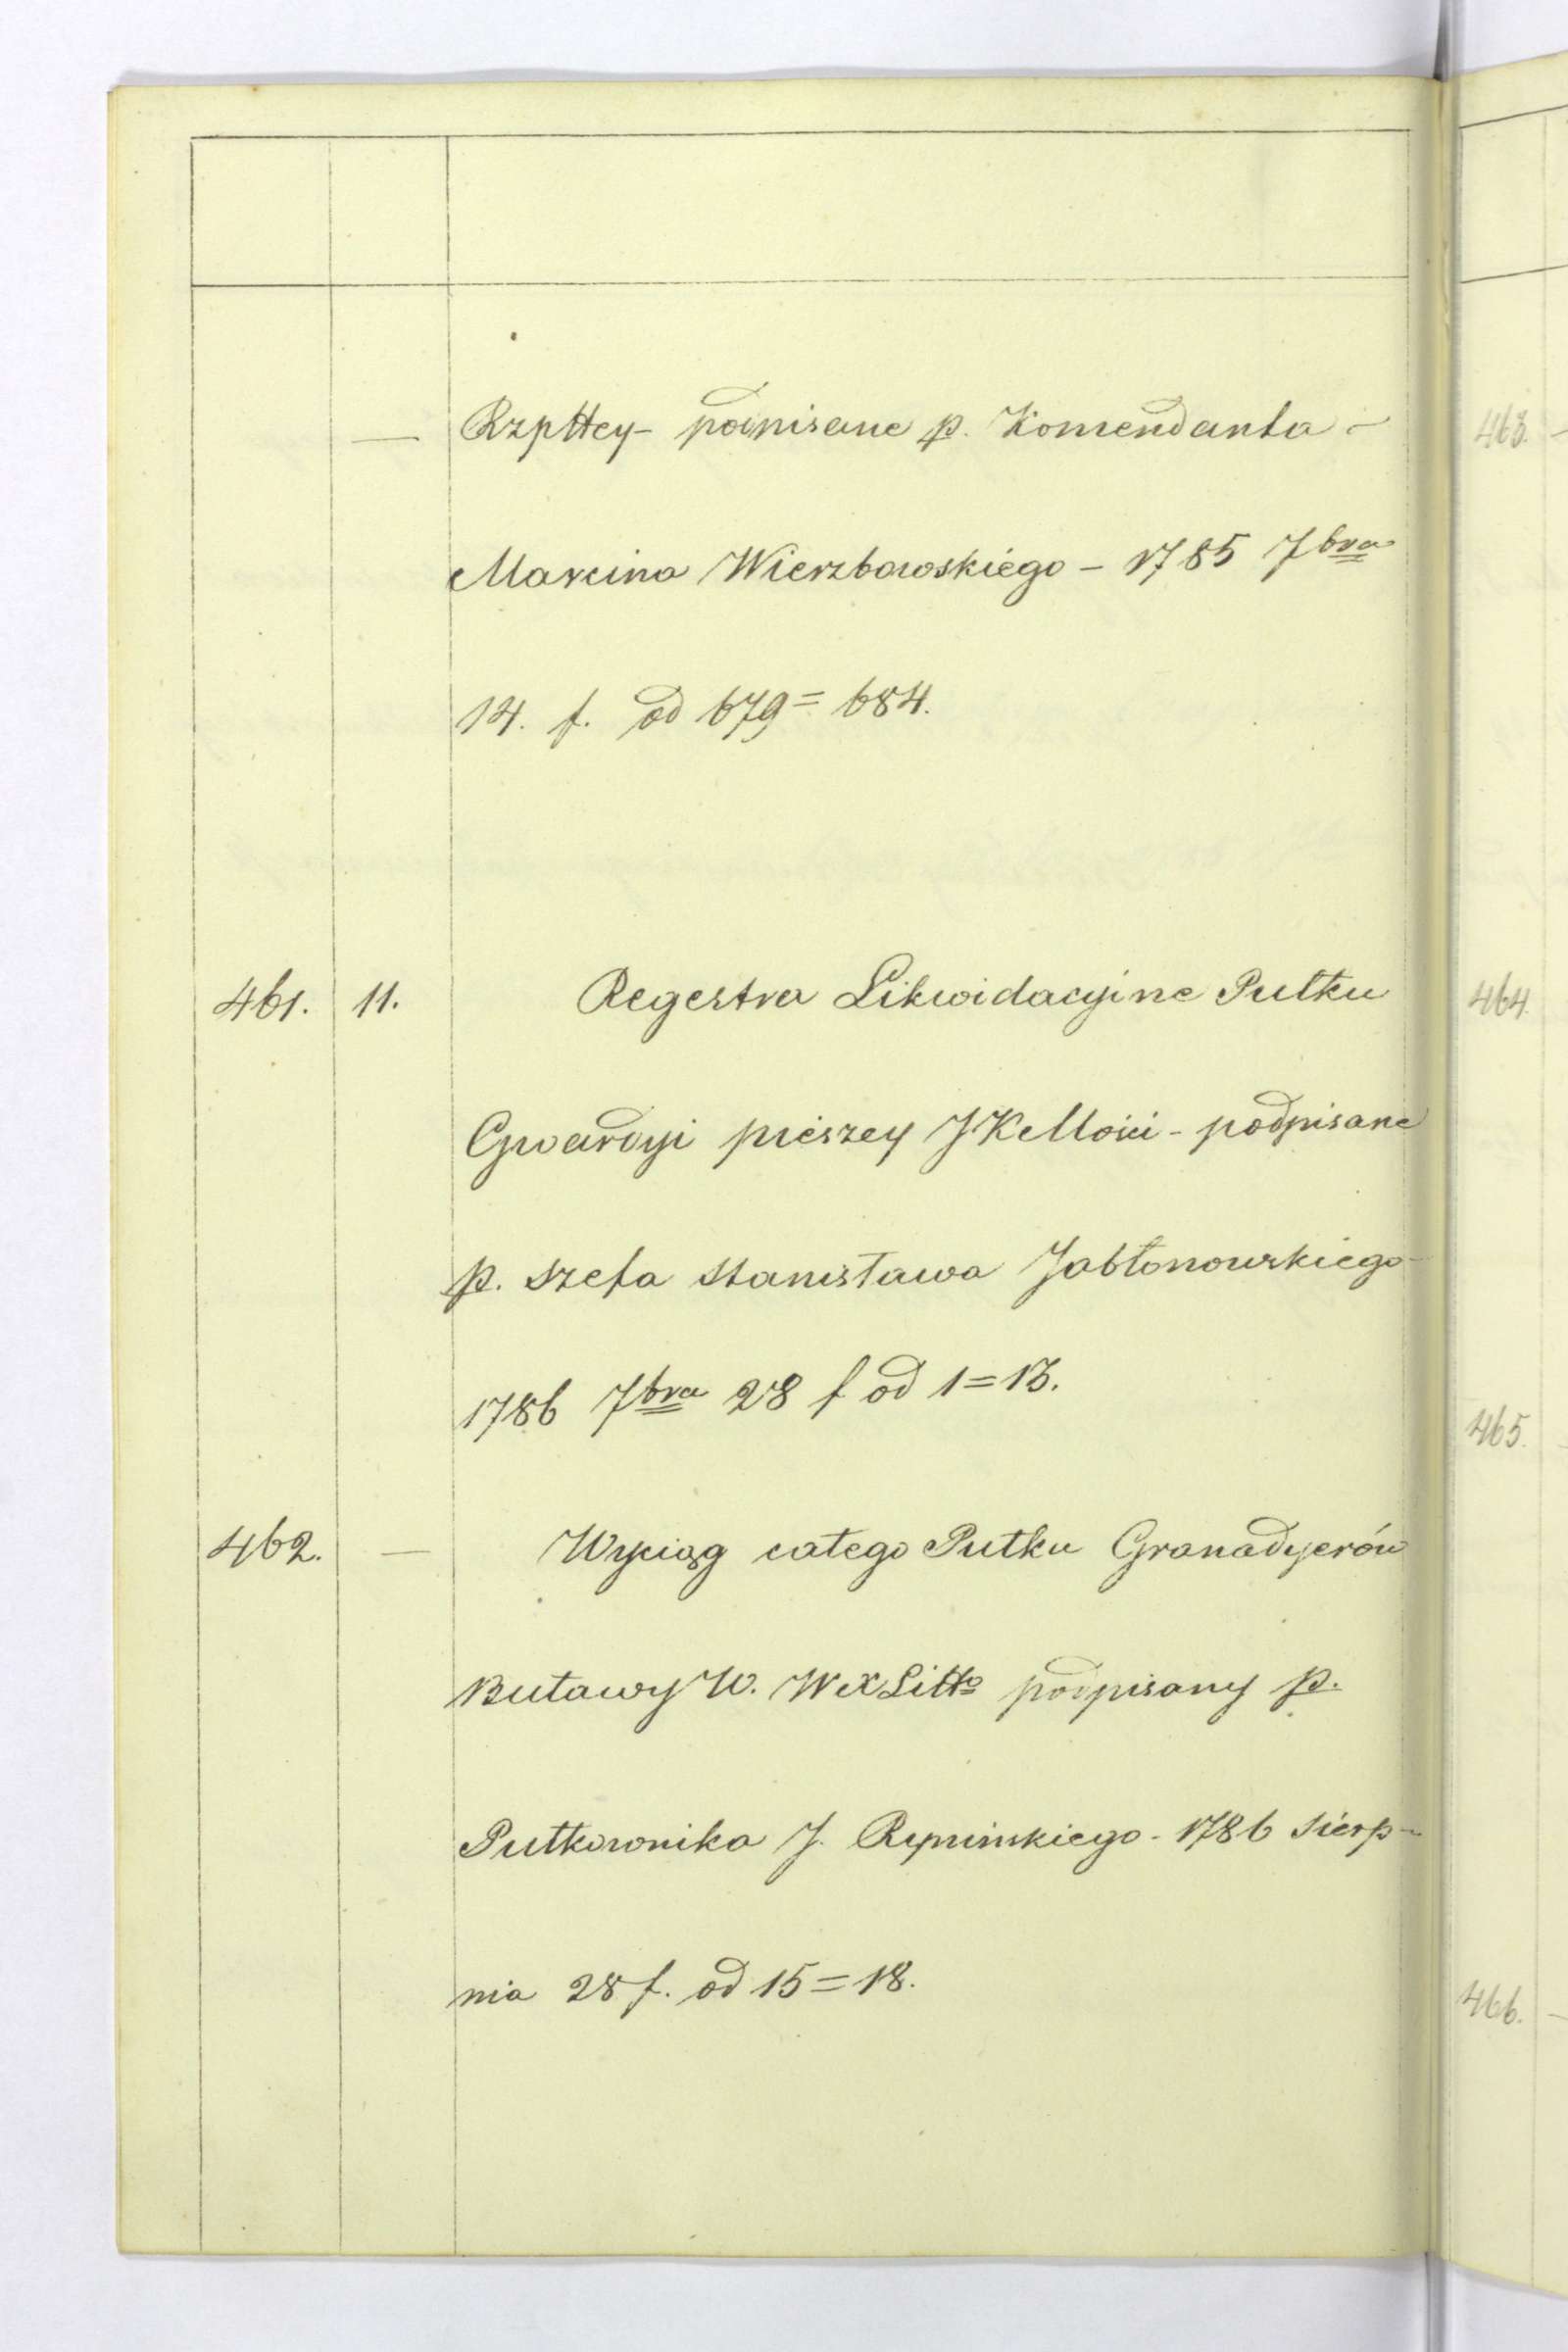 — Rzpttey – podpisane p. Komendanta –
Marcina Wierzbowskiego – 1785 7bra
14. f. od 679 = 684.
461. 11. Regestra Likwidacyine Pułku
Gwardyi pieszey JKMości – podpisane
p. Szefa Stanisława Jabłonowskiego –
1786 7bra 28 f od 1 = 13.
462. — Wyciąg całego Pułku Granadyerów
Buławy W. WXLitto podpisany p.
Pułkownika J. Rypińskiego – 1786 Sierp–
nia 28 f. od 15 = 18.
463. –
464.
465.
466. –